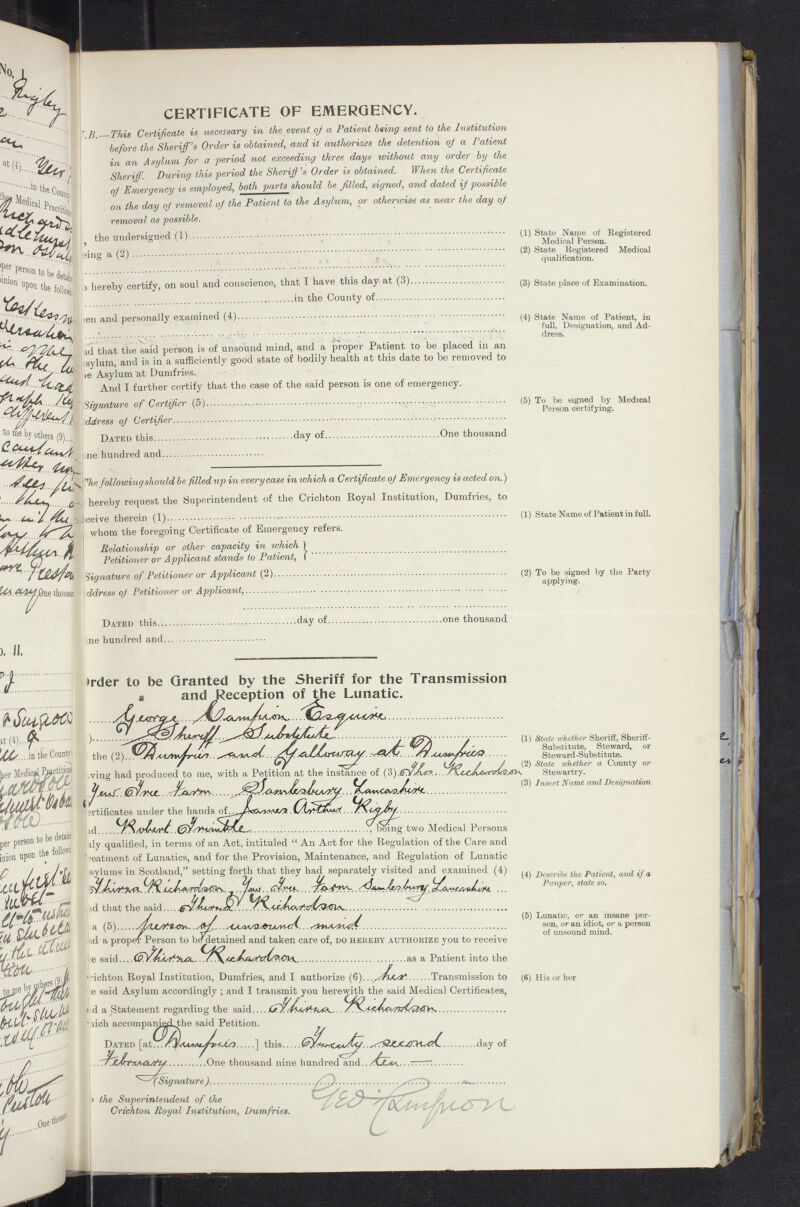 CERTIFICATE OF EMERGENCY.
.B.—This Certificate is necessary in the event of a Patient being sent to the Institution
before the Sheriff's Order is obtained, and it authorizes the detention of a Patient
in an Asylum for a period not exceeding three days without any order by the
Sheriff. During this period the Sheriff's Order is obtained. When the Certificate
of Emergency is employed, both parts should be filled, signed, and dated if possible
on the day of removal of the Patient to the Asylum, or otherwise as near the day of
removal as possible.
, the undersigned (1)
(1) State Name of Registered
Medical Person.
eing a (2)
(2) State Registered Medical
qualification.
o hereby certify, on soul and conscience, that I have this day at (3)
(3) State place of Examination.
in the County of
een and personally examined (4)
(4) State Name of Patient, in
full, Designation, and Ad-
dress.
nd that the said person is of unsound mind, and a proper Patient to be placed in an
sylum, and is in a sufficiently good state of bodily health at this date to be removed to
e Asylum at Dumfries.
And I further certify that the case of the said person is one of emergency.
Signature of Certifier (5)
(5) To be signed by Medical
Person certifying.
ddress of Certifier
DATED this day of One thousand
ne hundred and
The following should be filled up in every case in which a Certificate of Emergency is acted on.)
hereby request the Superintendent of the Crichton Royal Institution, Dumfries, to
ceive therein (1)
(1) State Name of Patient in full.
whom the foregoing Certificate of Emergency refers.
Relationship or other capacity in which }
Petitioner or Applicant stands to Patient, }
Signature of Petitioner or Applicant (2)
(2) To be signed by the Party
applying.
ddress of Petitioner or Applicant,
DATED this day of one thousand
ne hundred and
rder to be Granted by the Sheriff for the Transmission
and Reception of the Lunatic.
George Campion Esquire
) Sheriff Substitute
(1) State whether Sheriff, Sheriff-
Substitute, Steward, or
Steward-Substitute.
the (2) Dumfries and Galloway at Dumfries
(2) State whether a County or
Stewartry.
aving had produced to me, with a Petition at the instance of (3) Thos. Richardson
(3) Insert Name and Designation
Yew Tree Farm Samlesbury Lancashire
ertificates under the hands of James Arthur Rigby
nd Robert Trimble, being two Medical Persons
uly qualified, in terms of an Act, intituled “ An Act for the Regulation of the Care and
reatment of Lunatics, and for the Provision, Maintenance, and Regulation of Lunatic
sylums in Scotland,” setting forth that they had separately visited and examined (4)
Thirna Richardson, Yew Tree Farm Samlesbury Lancashire
(4) Describe the Patient, and if a
Pauper, state so.
nd that the said Thirna Richardson
a (5) person of unsound mind
(5) Lunatic, or an insane per-
son, or an idiot, or a person
of unsound mind.
nd a proper Person to be detained and taken care of, DO HEREBY AUTHORIZE you to receive
e said Thirna Richardson as a Patient into the
richton Royal Institution, Dumfries, and I authorize (6) her Transmission to
(6) His or her
e said Asylum accordingly ; and I transmit you herewith the said Medical Certificates,
nd a Statement regarding the said Thirna Richardson
hich accompanied the said Petition.
DATED [at Dumfries ] this Twenty second day of
February One thousand nine hundred and ten —
(Signature)
Geo Campion
o the Superintendent of the
Crichton Royal Institution, Dumfries.